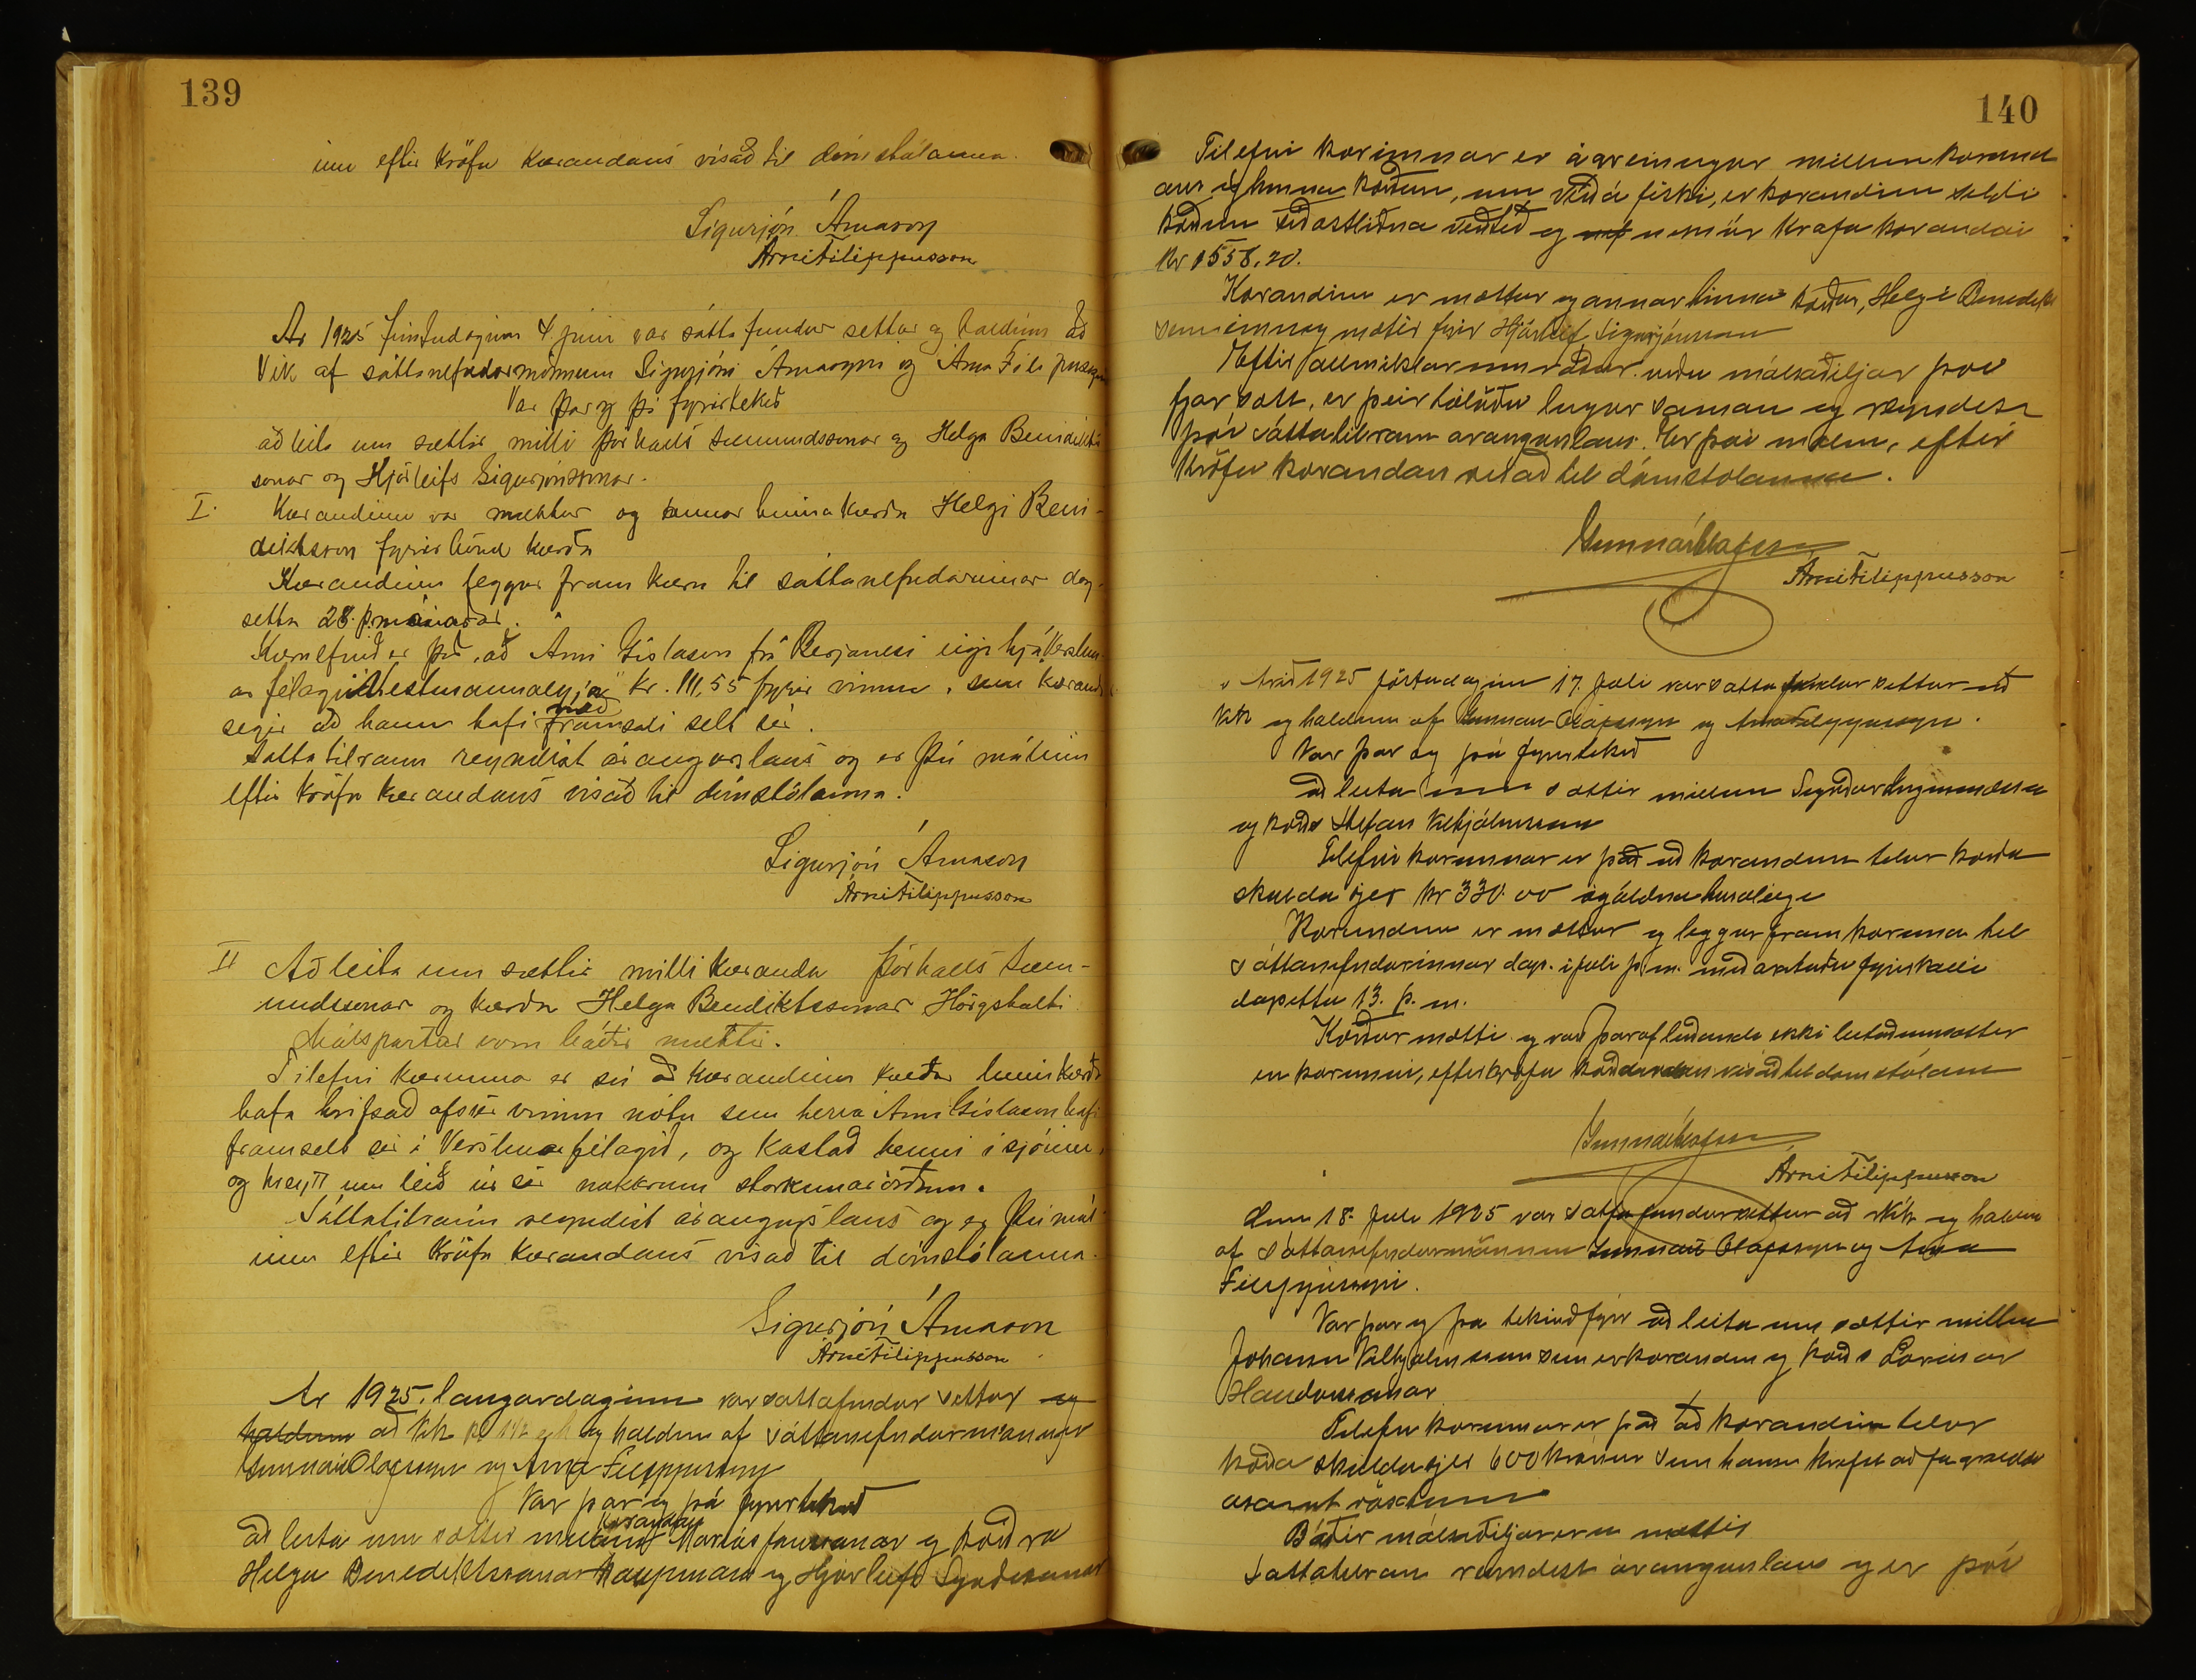 139
inu eftir kröfu kærandans vísað til dómstólanna.
Sigurjón Árnason
Árni Filippusson
Ár 1925 fimtudaginn 4. júní var sáttafundur settur og haldinn að
Vík af sáttanefndarmönnum Sigurjóni Árnasyni og Árna Filippussyni
Var þar og þá fyrirtekið
að leita um sættir milli Þórhalls Sæmundssonar og Helga Benidikts
sonar og Hjörleifs Sigurjónssonar.
I. Kærandinn var mættur og annar hinna kærðu Helgi Beni-
diktsson fyrir hönd kærða
Kærandinn leggur fram kæru til sáttanefndarinnar dag-
setta 28. f. mánaðar.
Kæruefnið er það, að Árni Gíslason frá Berjanesi eigi hjá Verslun-
arfélagi Vestmannaeyja kr. 111,55 fyrir vinnu, sem kærandi
segir að hann hafi með framsali selt sér.
Sáttatilraun reyndist árangurslaus og er því málinu
eftir kröfu kærandans vísað til dómstólanna.
Sigurjón Árnason
Árni Filippusson
II Að leita um sættir milli kæranda Þórhalls Sæm-
undssonar og kærða Helga Bendiktssonar Hörgsholti
Málspartar voru báðir mættir.
Tilefni kærunnar er sú að kærandinn kveður hinn kærða
hafa hrifsað af sér vinnu nótu sem herra Árni Gíslason hafi
framselt sér í Verslunarfélagið, og kastað henni í sjóinn,
og hreytt um leið úr sér nokkrum storkunarorðum.
Sáttatilraun reyndist árangurslaus og er því mál
inu eftir kröfu kærandans vísað til dómstólanna.
Sigurjón Árnason
Árni Filippusson
Ár 1925, laugardaginn var sáttafundur settur og
haldinn að Vík og haldinn af sáttanefndarmönnum
Gunnari Ólafssyni og Árna Filippussyni
Var þar og þá fyrirtekið
að leita um sættir millum kæranda Maríasar og kærðra
Helga Benediktssonar kaupmanns og Hjörleifs
140
Tilefni kærunnar er ágreiningur millum kærand
ans og hinna kærðu, um verð á fiski, er kærandinn seldi
kærðum síðastliðna vertíð og nemur krafa kæranda
kr 1558.20.
Kærandinn er mættur og annar hinna kærðu, Helgi Benedikts
sem einnig mætir fyrir Hjörleif Sigurjónsson
Eftir allmiklar umræður urðu málsaðiljar þvi
fjær sátt, er þeir töluðu lengur saman og reyndist
því sáttatilraun árangurslaus. Er því málinu, eftir
kröfu kærandans vísað til dómstólanna.
Gunnar Ólafsson
Árni Filippusson
Árið 1925 föstudaginn 17. Júlí var sáttafundur settur að
Vík og haldinn af Gunnari Ólafssyni og Árna Filippussyni.
Var þar og þá fyrirtekið
að leita um sættir millum Sigurðar Ingimundssonar
og kærðs Stefáns Vilhjálmssonar
Tilefni kærunnar er það að kærandinn telur kærða
skulda sjer kr 330.00 ógoldna húsaleigu
Kærandinn er mættur og leggur fram kæruna til
sáttanefndarinnar dags. í júlí þ. m. með árituðu fyrirkalli
dagsettu 13. þ. m.
Kærður mætti og varð þaraf leiðandi ekki leitað um sættir
en kærunni, eftir kröfu kærandans vísað til dómstólanna
Gunnar Ólafsson
Árni Filippusson
Ánn 18. Júlí 1925 var sáttafundur settur að Vík og haldinn
af sáttanefndarmönnum Gunnari Ólafssyni og Árna
Filippussyni.
Var þar og þá tekið fyrir að leita um sættir millum
Jóhanns Vilhjálmssonar sem er kærandi og kærðs
Tilefni kærunnar er það að kærandinn telur
kærða skulda sjer 600 krónur sem hann krefst að fá greiddar
ásamt vöxtum
Báðir málsaðiljar eru mættir
Sáttatilraun reyndist árangurslaus og er því